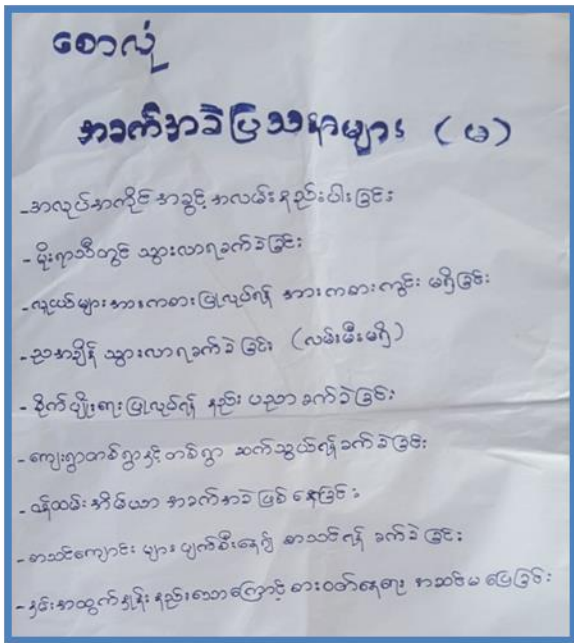 စောလုံ
အခက်အခဲပြဿနာများ (မ)
-အလုပ်အကိုင်အခွင့်အလမ်းနည်းပါးခြင်း
-မိုးရာသီတွင် သွားလာရခက်ခဲခြင်း
-လူငယ်များအားကစားပြုလုပ်ရန် အားကစားကွင်း မရှိခြင်း
-ညအချိန် သွားလာရခက်ခဲခြင်း (လမ်းမီးမရှိ)
-စိုက်ပျိုးရေးပြုလုပ်ရန် နည်းပညာ ခက်ခဲခြင်း
-ကျေးရွာတစ်ရွာနှင့်တစ်ရွာ ဆက်သွယ်ရန်ခက်ခဲခြင်း
-ဝန်ထမ်းအိမ်ယာ အခက်အခဲဖြစ်နေခြင်း
-စာသင်ကျောင်းများပျက်စီးနေ၍ စာသင်ရန် ခက်ခဲခြင်း
-နှမ်းအထွက်နှုန်းနည်းသောကြောင့် စားဝတ်နေရေး အဆင်မပြေခြင်း